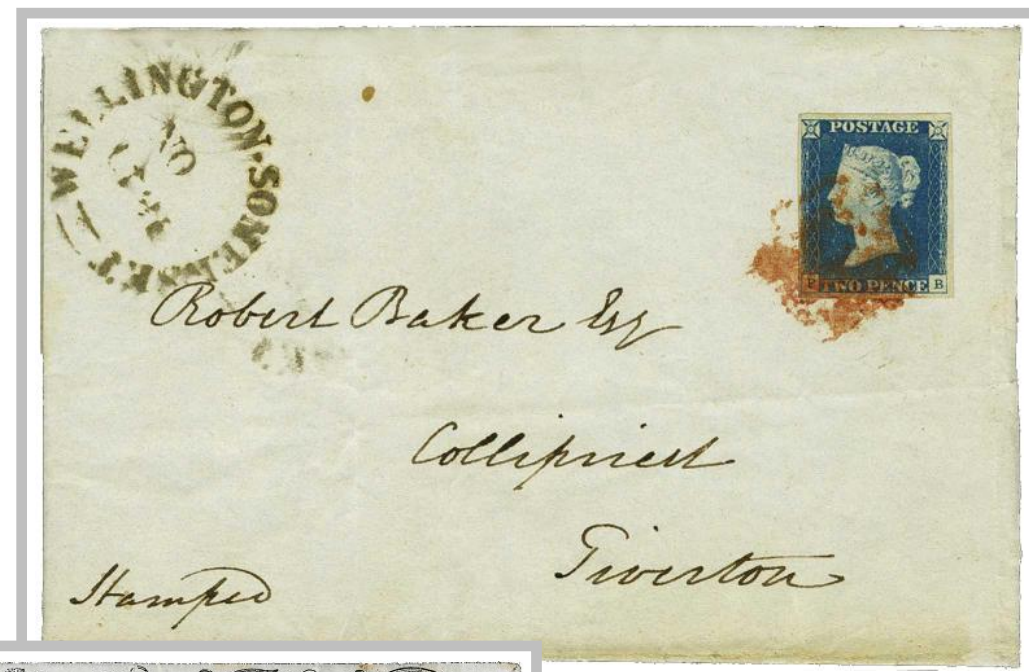 WELLINGTON·SOMERSET
NO
POSTAGE
TWO PENCE B
Robert Baker Esq
Collipriest
Tiverton
Stamped